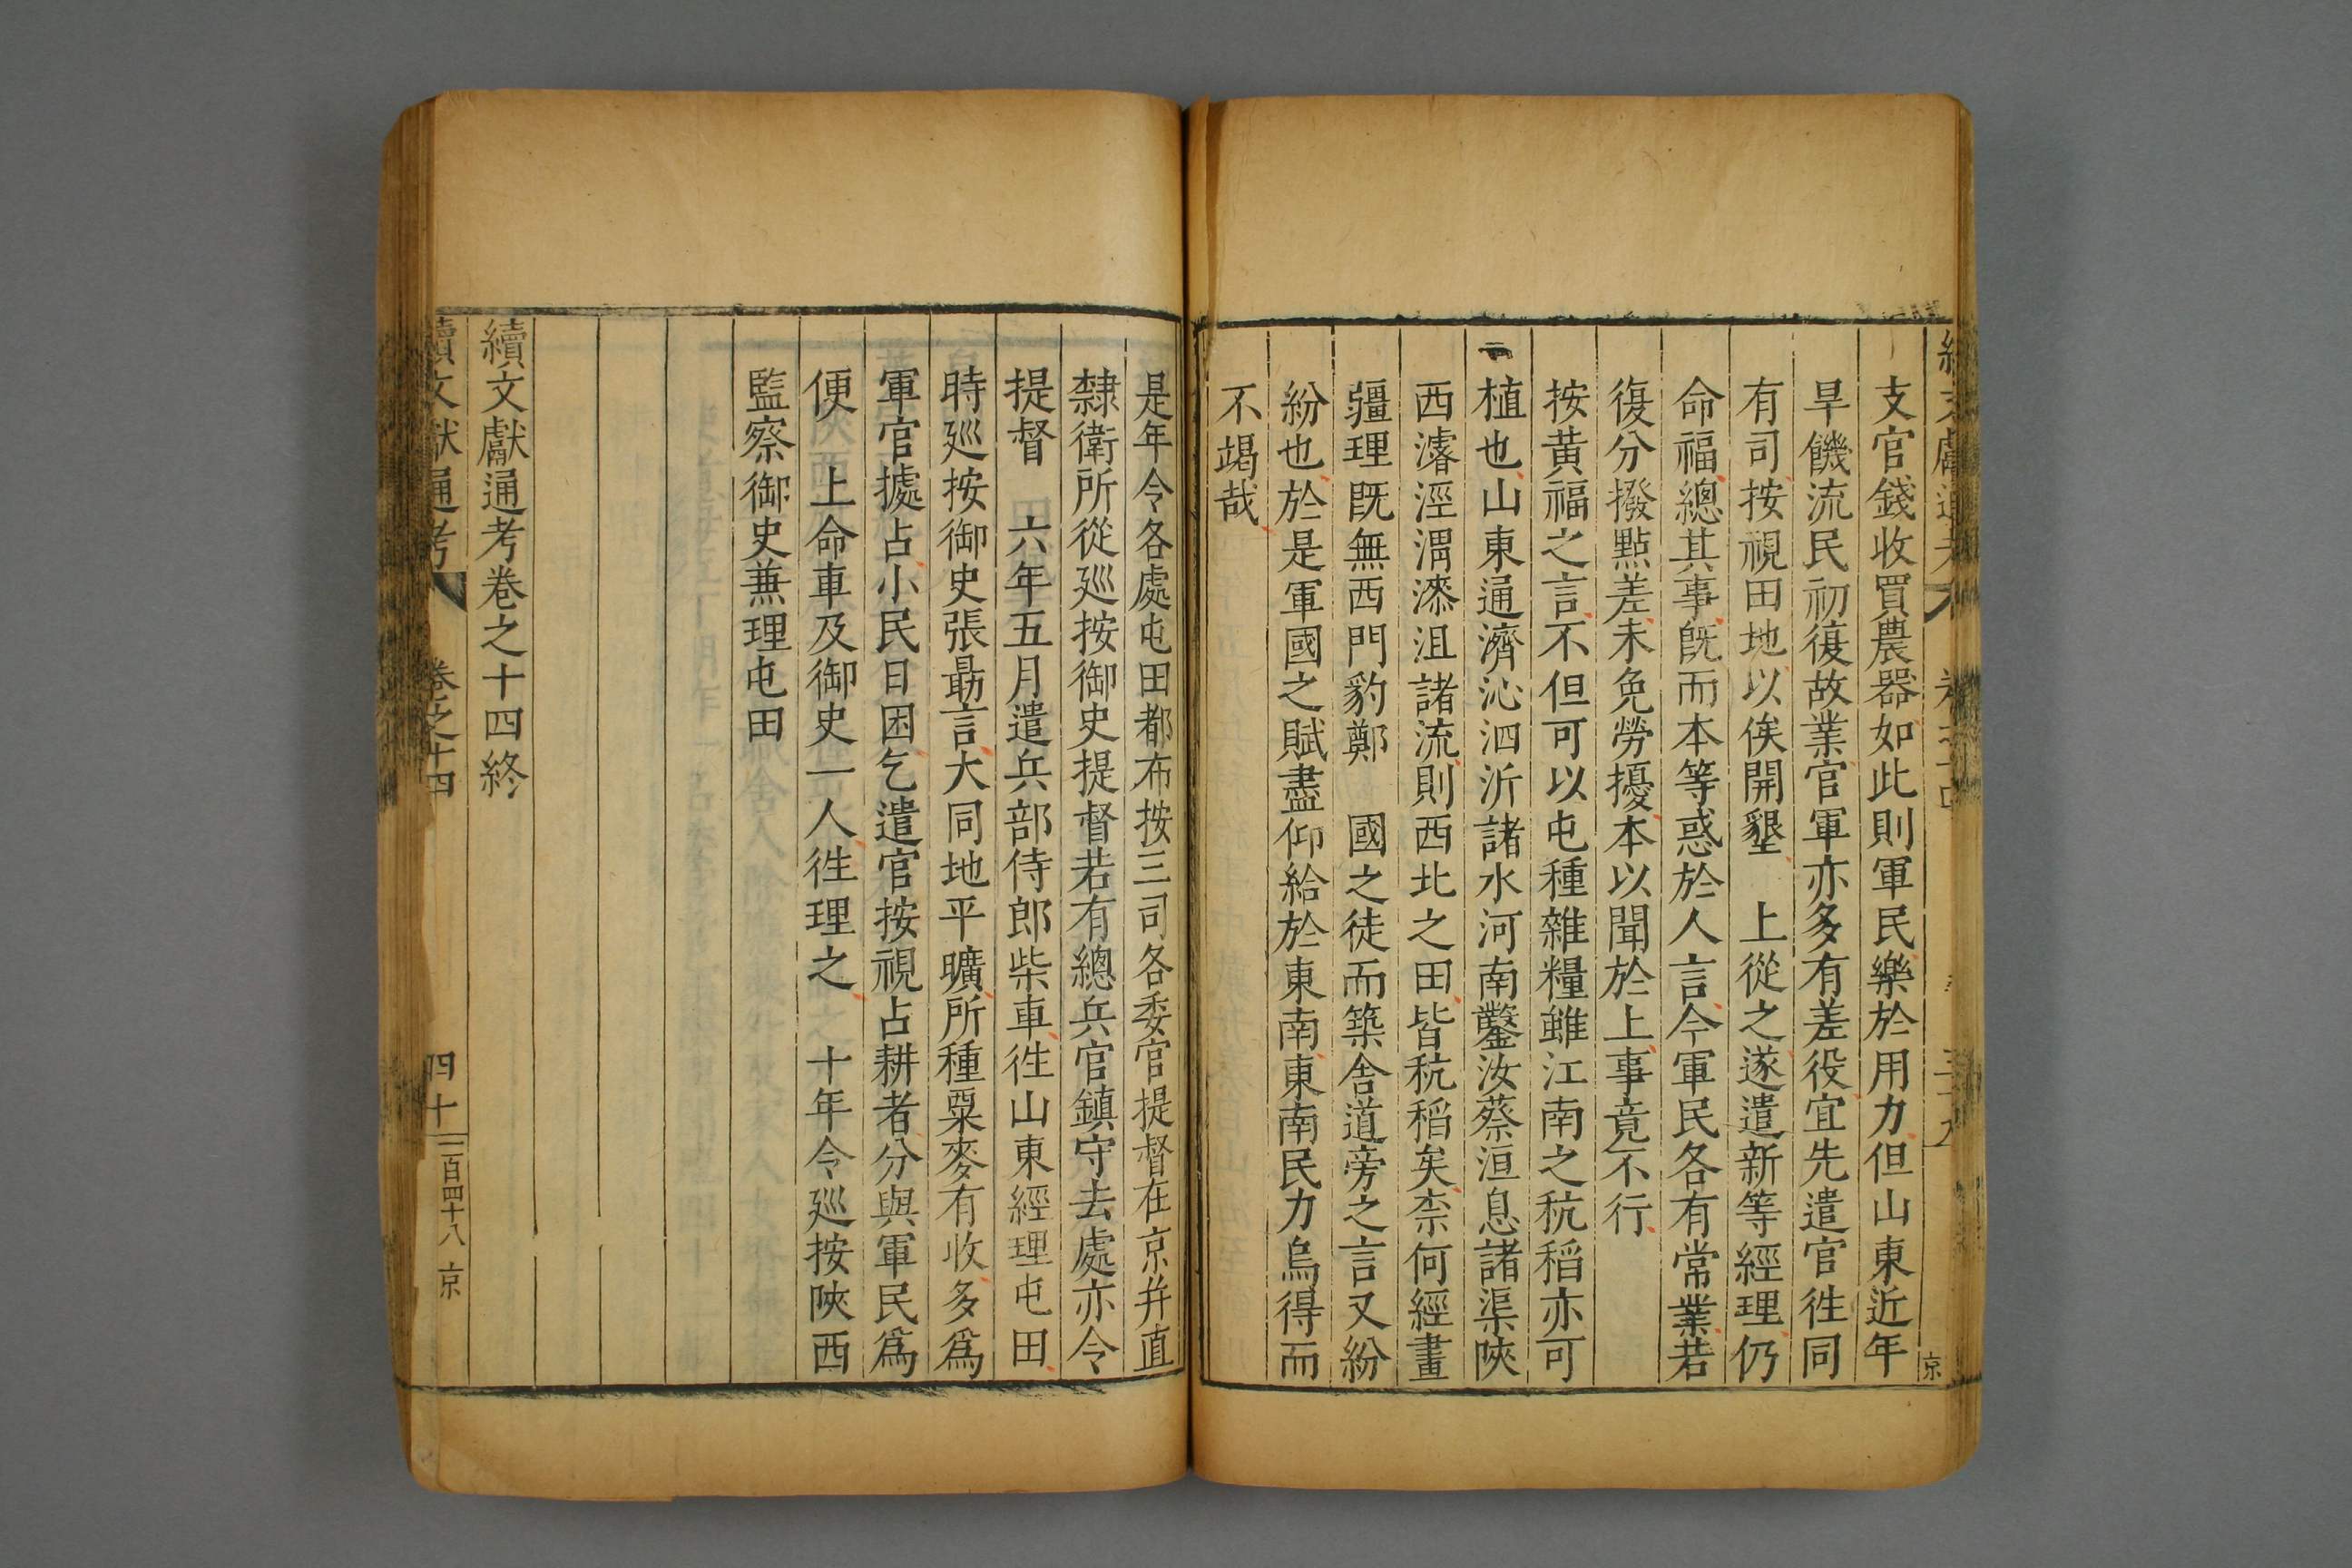 支官錢收買農器如此則軍民樂於用力但山東近年
旱饑流民初復故業官軍亦多有差役宜先遣官徃同
有司按視田地以俟開墾　上從之遂遣新等經理仍
命福總其事既而本等惑於人言今軍民各有常業若
復分撥點差未免勞擾本以聞於上事竟不行
按黄福之言不但可以屯種雜糧雖江南之秔稻亦可
植也山東通濟沁泗沂諸水河南鑿汝蔡洹息諸渠陝
西濬涇渭漆沮諸流則西北之田皆秔稻矣柰何經畫
疆理旣無西門豹鄭　國之徒而築舍道旁之言又紛
紛也於是軍國之賦盡仰給於東南東南民力烏得而
不竭哉
是年令各處屯田都布按三司各委官提督在京并直
隸衛所從廵按御史提督若有總兵官鎮守去處亦令
提督　六年五月遣兵部侍郎柴車徃山東經理屯田
時廵按御史張勗言大同地平曠所種粟麥有收多爲
軍官㨿占小民日困乞遣官按視占耕者分與軍民爲
便　上命車及御史一人徃理之　十年令廵按陝西
監察御史兼理屯田
續文獻通考卷之十四終
續文獻通考　卷之十四　四十　三百四十八　京